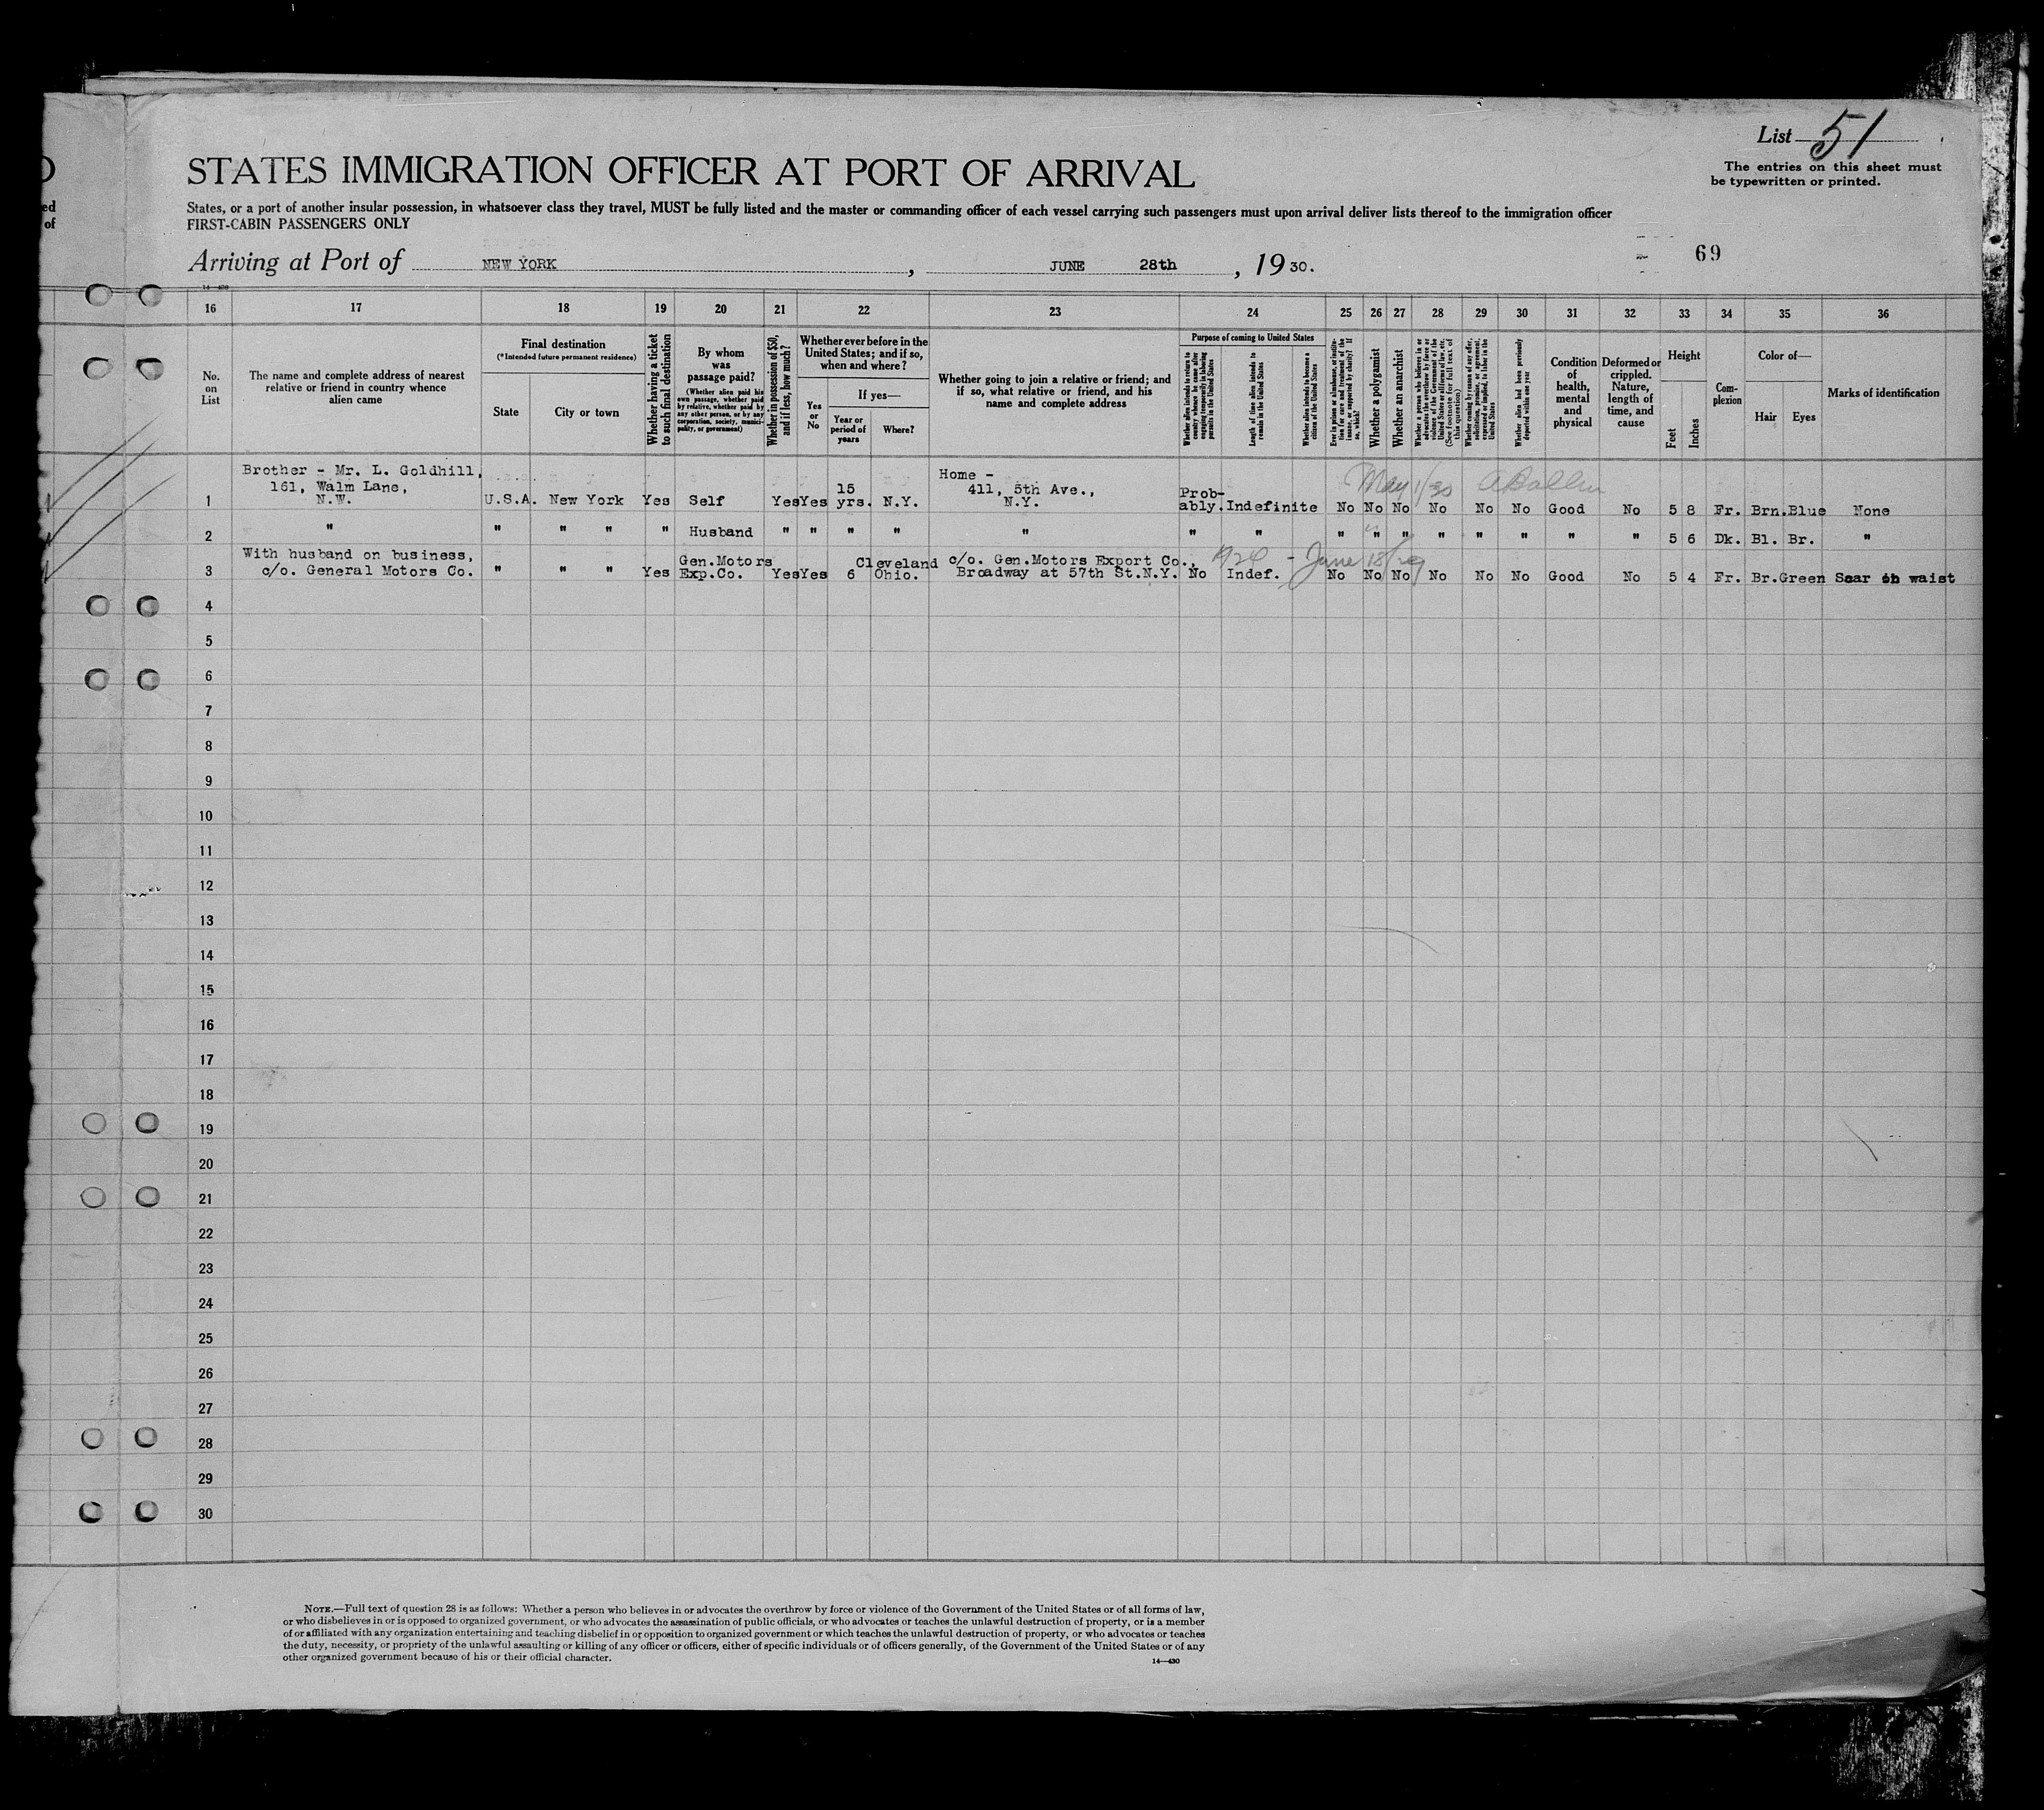 List 51
The entries on this sheet must
be typewritten or printed.
STATES IMMIGRATION OFFICER AT PORT OF ARRIVAL
ed
of
States, or a port of another insular possession, in whatsoever class they travel, MUST be fully listed and the master or commanding officer of each vessel carrying such passengers must upon arrival deliver lists thereof to the immigration officer
FIRST-CABIN PASSENGERS ONLY
Arriving at Port of NEW YORK, JUNE 28th, 1930.
69
14—430
16 17 18 19 20 21 22 23 24 25 26 27 28 29 30 31 32 33 34 35 36
No. on List
The name and complete address of nearest relative or friend in country whence alien came
Final destination
(*Intended future permanent residence)
State
City or town
Whether having a ticket to such final destination
By whom was passage paid?
(Whether alien paid his own passage, whether paid by relative, whether paid by any other person, or by any corporation, society, municipality, or government)
Whether in possession of $50, and if less, how much?
Whether ever before in the United States; and if so, when and where?
Yes or No
If yes—
Year or period of years
Where?
Whether going to join a relative or friend; and if so, what relative or friend, and his name and complete address
Purpose of coming to United States
Whether alien intends to return to country whence he came after engaging temporarily in laboring pursuits in the United States
Length of time alien intends to remain in the United States
Whether alien intends to become a citizen of the United States
Ever in prison or almshouse, or institution for care and treatment of the insane, or supported by charity? If so, which?
Whether a polygamist
Whether an anarchist
Whether a person who believes in or advocates the overthrow by force or violence of the Government of the United States or all forms of law, etc. (See footnote for full text of this question)
Whether coming by reason of any offer, solicitation, promise, or agreement, expressed or implied, to labor in the United States
Whether alien had been previously deported within one year
Condition of health, mental and physical
Deformed or crippled. Nature, length of time, and cause
Height
Feet
Inches
Complexion
Color of—
Hair
Eyes
Marks of identification
May 1/30
1 Brother - Mr. L. Goldhill, 161, Walm Lane, N.W. U.S.A. New York Yes Self Yes Yes 15 yrs. N.Y. Home - 411, 5th Ave., N.Y. Probably. Indefinite No No No No No No Good No 5 8 Fr. Brn. Blue None
2 " " " " " Husband " " " " " " " " " " " " " " " 5 6 Dk. Bl. Br. "
- June 18/29
3 With husband on business, c/o. General Motors Co. " " " Yes Gen.Motors Exp.Co. Yes Yes 6 Cleveland Ohio. c/o. Gen.Motors Export Co., Broadway at 57th St.N.Y. No Indef. No No No No No No Good No 5 4 Fr. Br. Green Scar on waist
4
5
6
7
8
9
10
11
12
13
14
15
16
17
18
19
20
21
22
23
24
25
26
27
28
29
30
NOTE.—Full text of question 28 is as follows: Whether a person who believes in or advocates the overthrow by force or violence of the Government of the United States or of all forms of law,
or who disbelieves in or is opposed to organized government, or who advocates the assassination of public officials, or who advocates or teaches the unlawful destruction of property, or is a member
of or affiliated with any organization entertaining and teaching disbelief in or opposition to organized government or which teaches the unlawful destruction of property, or who advocates or teaches
the duty, necessity, or propriety of the unlawful assaulting or killing of any officer or officers, either of specific individuals or of officers generally, of the Government of the United States or of any
other organized government because of his or their official character.
14—430